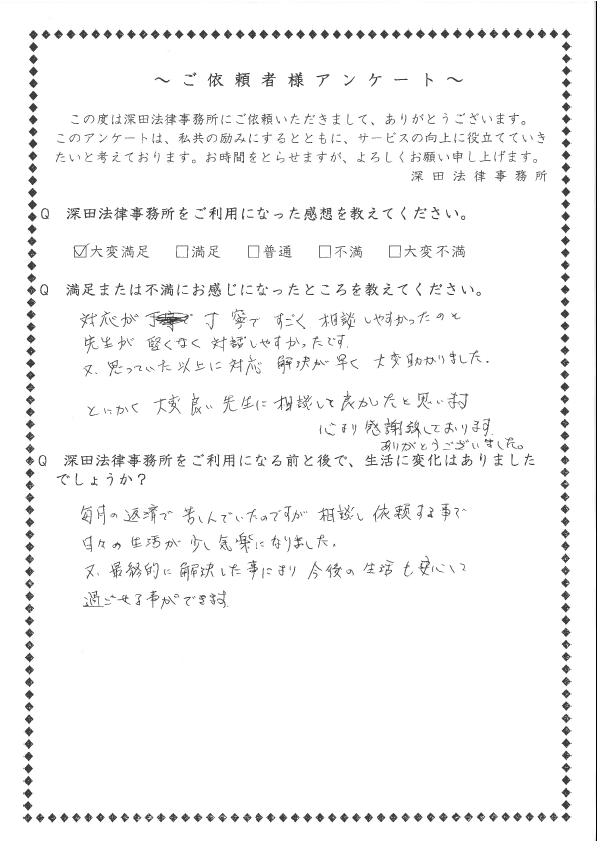 ～ご依頼者様アンケート～
この度は深田法律事務所にご依頼いただきまして、ありがとうございます。
このアンケートは、私共の励みにするとともに、サービスの向上に役立てていき
たいと考えております。お時間をとらせますが、よろしくお願い申し上げます。
深田法律事務所
Q　深田法律事務所をご利用になった感想を教えてください。
☑大変満足　□満足　□普通　□不満　□大変不満
Q　満足または不満にお感じになったところを教えてください。
対応が 丁寧で すごく 相談しやすかったのと
先生が 堅くなく 対話しやすかったです.
又、思っていた以上に対応 解決が早く 大変助かりました.
とにかく 大変良い先生に相談して良かったと思います
心より感謝致しております.
ありがとうございました。
Q　深田法律事務所をご利用になる前と後で、生活に変化はありました
でしょうか？
毎月の返済で苦しんでいたのですが 相談し依頼する事で
日々の生活が少し気楽になりました.
又、最終的に解決した事により 今後の生活も安心して
過ごせる事ができます.